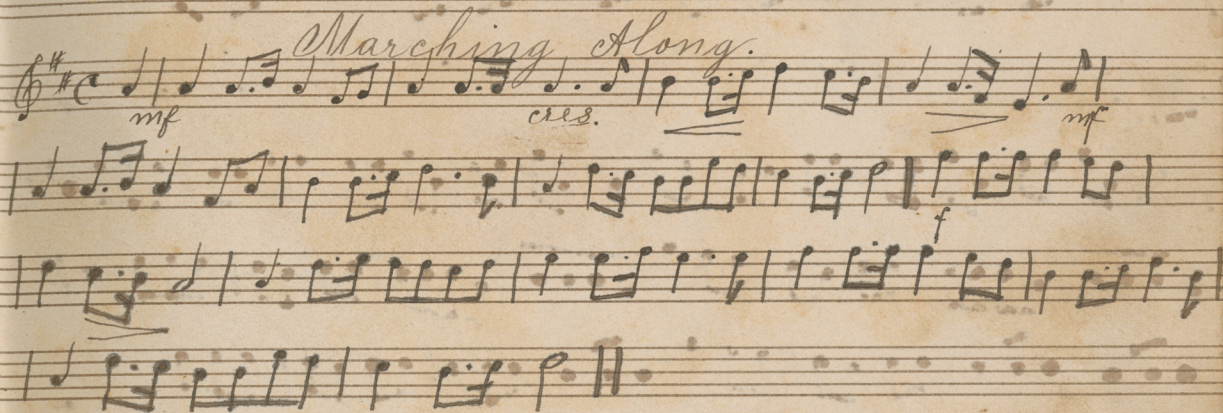 Marching Along.
mf cres. mf
f